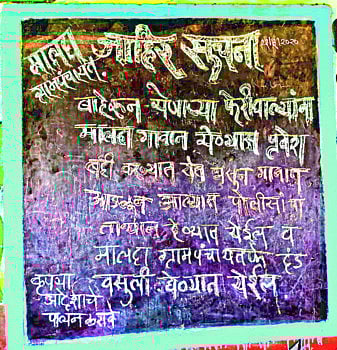 मालदा
ग्रामपंचायत
जाहिर सुचना
बाहेरून येणाऱ्या फेरीवाल्यांना
मालदा गावात येण्यास प्रवेश
बंदी करण्यात येत असुन गावात
आढळून आल्यास पोलीसांच्या
ताब्यात देण्यात येईल व
मालदा ग्रामपंचायतचा दंड
वसुली घेण्यात येईल
कृपया
आदेशाचे
पालन करावे